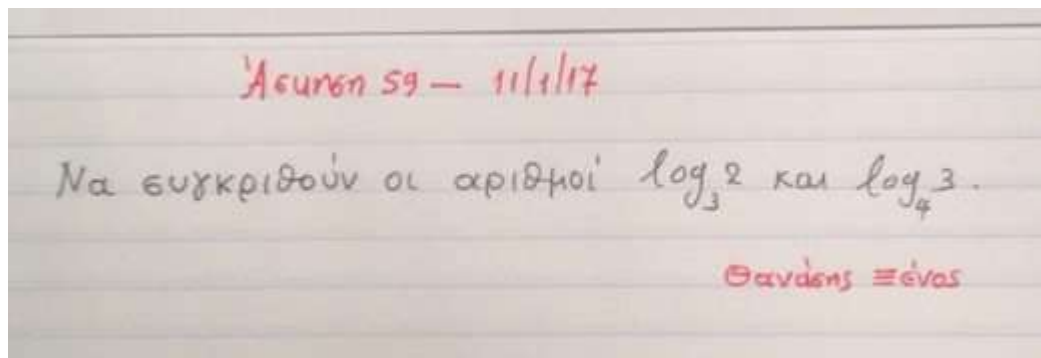 Άσκηση 59 — 11/1/17
Να συγκριθούν οι αριθμοί log₃2 και log₄3.
Θανάσης Ξένος